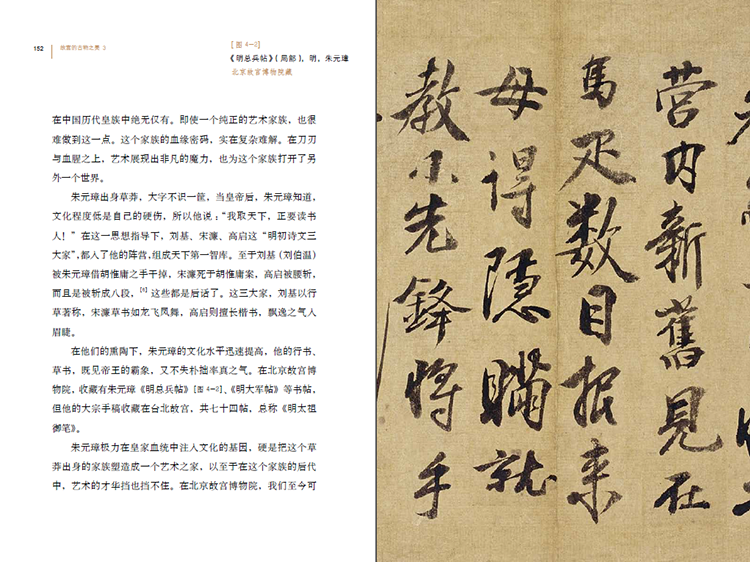 152 故宫的古物之美 3
[图 4-2]
《明总兵帖》（局部），明，朱元璋
北京故宫博物院藏
在中国历代皇族中绝无仅有。即使一个纯正的艺术家族，也很
难做到这一点。这个家族的血缘密码，实在复杂难解。在刀刃
与血腥之上，艺术展现出非凡的魔力，也为这个家族打开了另
外一个世界。
朱元璋出身草莽，大字不识一筐，当皇帝后，朱元璋知道，
文化程度低是自己的硬伤，所以他说：“我取天下，正要读书
人！”在这一思想指导下，刘基、宋濂、高启这“明初诗文三
大家”，都入了他的阵营，组成天下第一智库。至于刘基（刘伯温）
被朱元璋借胡惟庸之手干掉，宋濂死于胡惟庸案，高启被腰斩，
而且是被斩成八段，[6]这些都是后话了。这三大家，刘基以行
草著称，宋濂草书如龙飞凤舞，高启则擅长楷书，飘逸之气入
眉睫。
在他们的熏陶下，朱元璋的文化水平迅速提高，他的行书、
草书，既见帝王的霸象，又不失朴拙率真之气。在北京故宫博
物院，收藏有朱元璋《明总兵帖》[图 4-2]、《明大军帖》等书帖，
但他的大宗手稿收藏在台北故宫，共七十四帖，总称《明太祖
御笔》。
朱元璋极力在皇家血统中注入文化的基因，硬是把这个草
莽出身的家族塑造成一个艺术之家，以至于在这个家族的后代
中，艺术的才华挡也挡不住。在北京故宫博物院，我们至今可
营内新舊見在
馬疋数目报来
毋得隱瞞就
教小先鋒將手